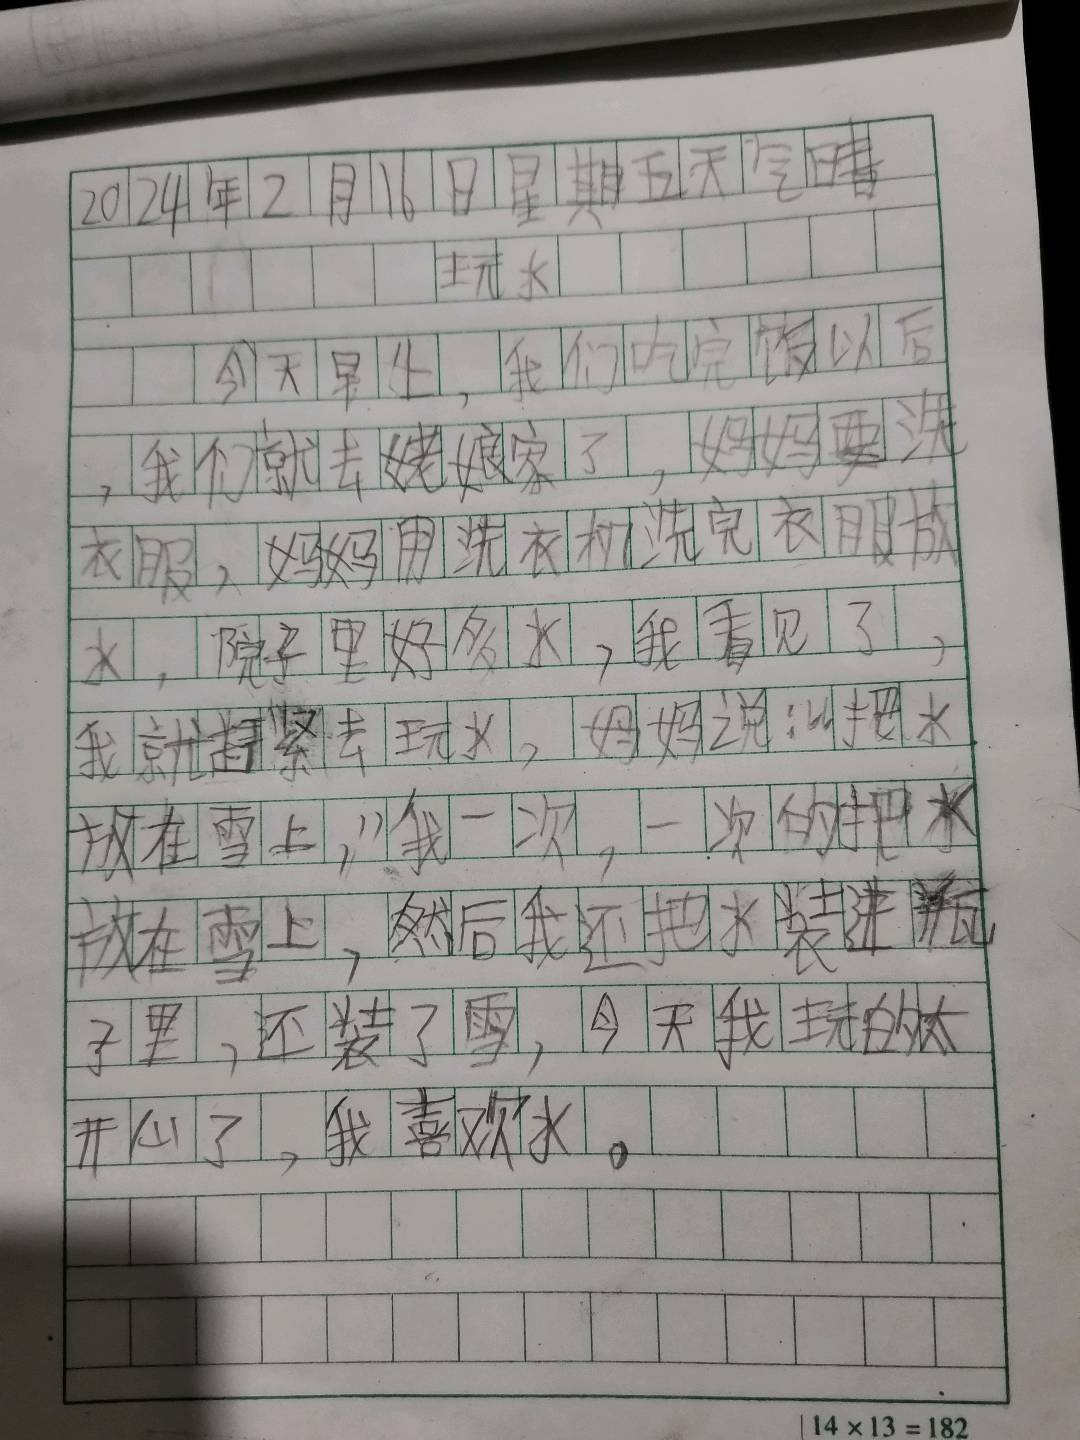 2024年2月16日星期五天气晴
玩水
今天早上,我们吃完饭以后
,我们就去姥娘家了,妈妈要洗
衣服,妈妈用洗衣机洗完衣服放
水,院子里好多水,我看见了,
我就赶紧去玩水,妈妈说:“把水
放在雪上,”我一次,一次的把水
放在雪上,然后我还把水装进瓶
子里,还装了雪,今天我玩的太
开心了,我喜欢水。
14×13=182